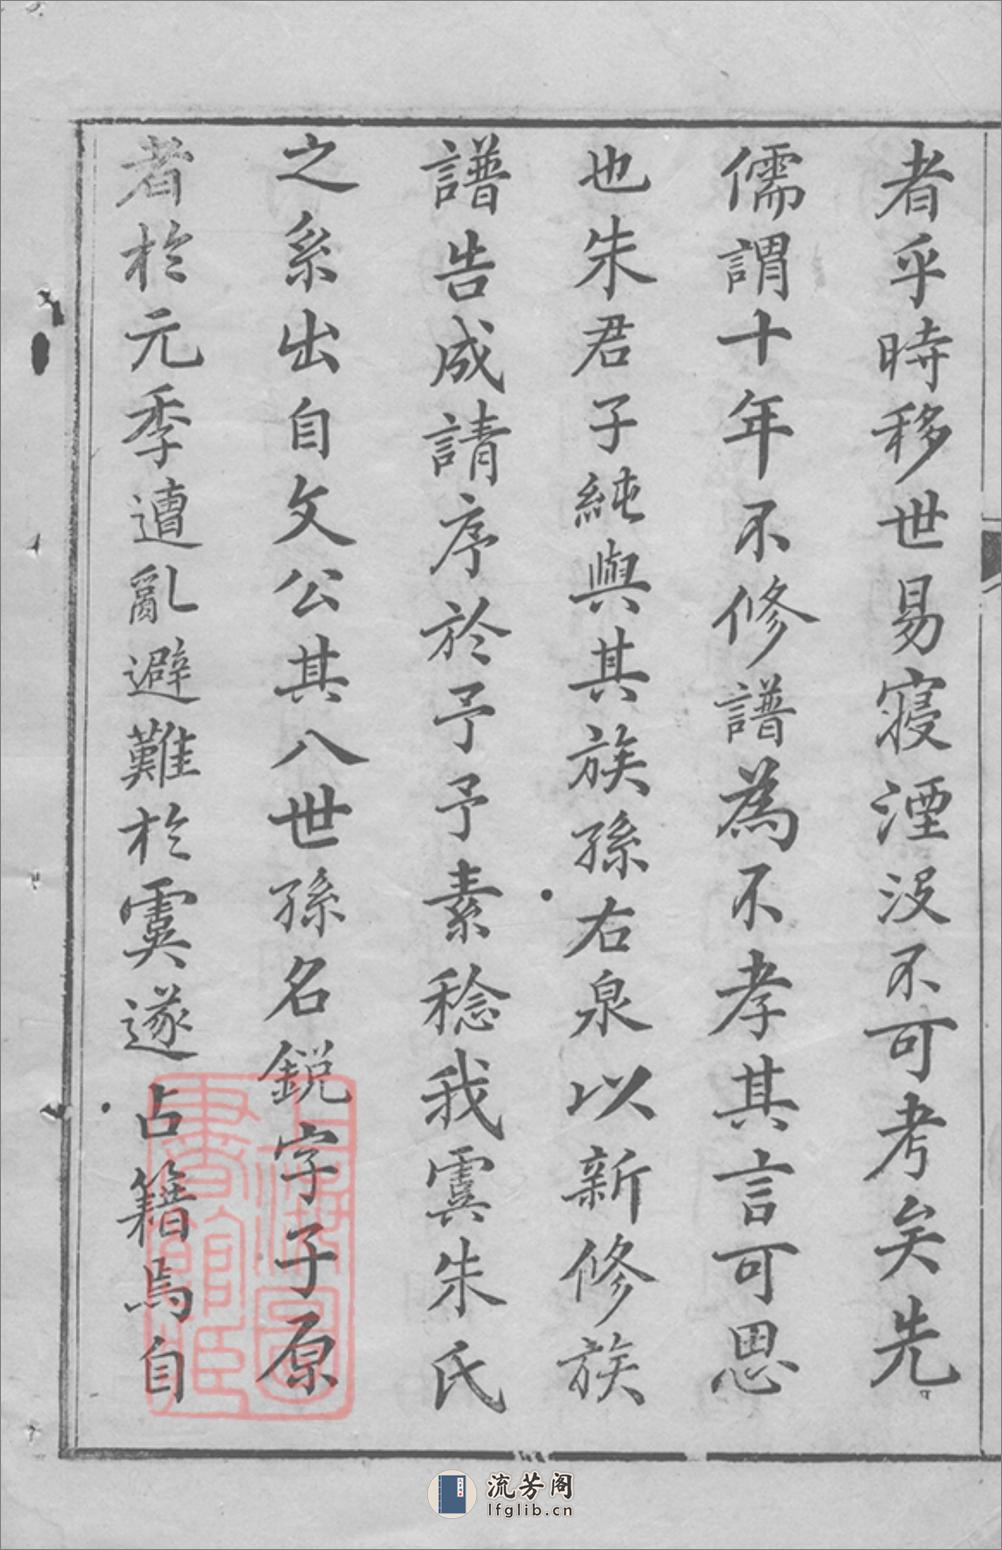 者乎時移世易寖湮没不可考矣先
儒謂十年不修譜為不孝其言可思
也朱君子純與其族孫右泉以新修族
譜告成請序於予予素稔我虞朱氏
之系出自文公其八世孫名鋭字子原
者於元季遭亂避難於虞遂占籍焉自
上海圖
書館藏
流芳阁
lfglib.cn